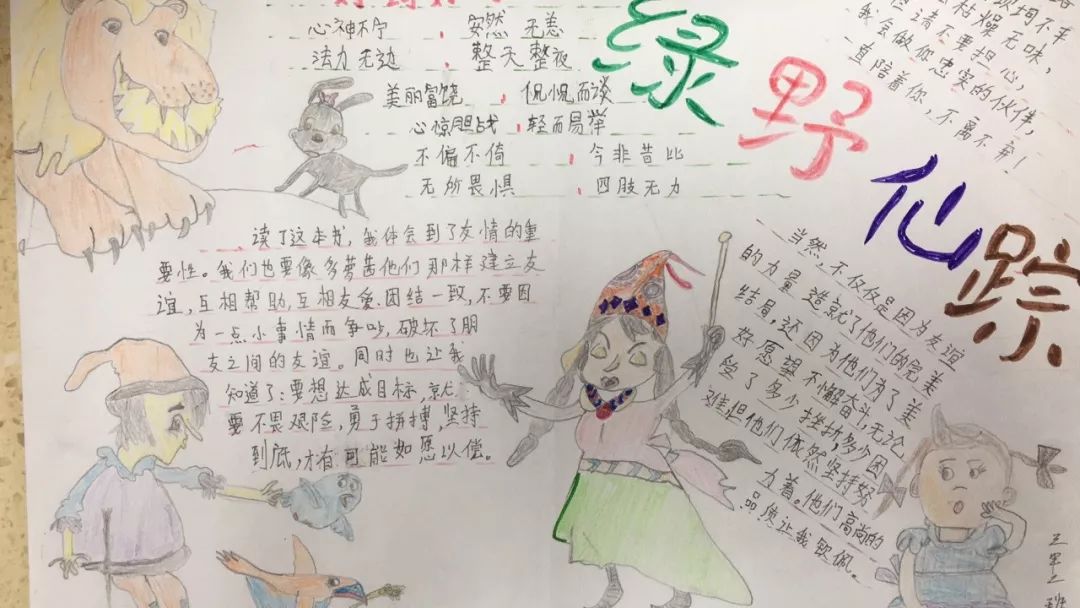 心神不宁 , 安然 无恙
法力无边 , 整天整夜
美丽富饶 , 侃侃而谈
心惊胆战 , 轻而易举
不偏不倚 , 今非昔比
无所畏惧 , 四肢无力
绿野仙踪
枯燥无味,
请不要担心,
我会做你忠实的伙伴,
一直陪着你,不离不弃!
读了这本书,我体会到了友情的重
要性。我们也要像多萝茜他们那样建立友
谊,互相帮助,互相友爱.团结一致,不要因
为一点小事情而争吵,破坏了朋
友之间的友谊。同时也让我
知道了:要想达成目标,就
要不畏艰险,勇于拼搏,坚持
到底,才有可能如愿以偿。
当然,不仅仅是因为友谊
的力量 造就了他们的完美
结局,还因为他们有了美
好愿望 不懈奋斗,无论
受了多少 挫折,多少困
难,但他们依然坚持努
力着。他们高尚的
品质让我钦佩。
三军二班